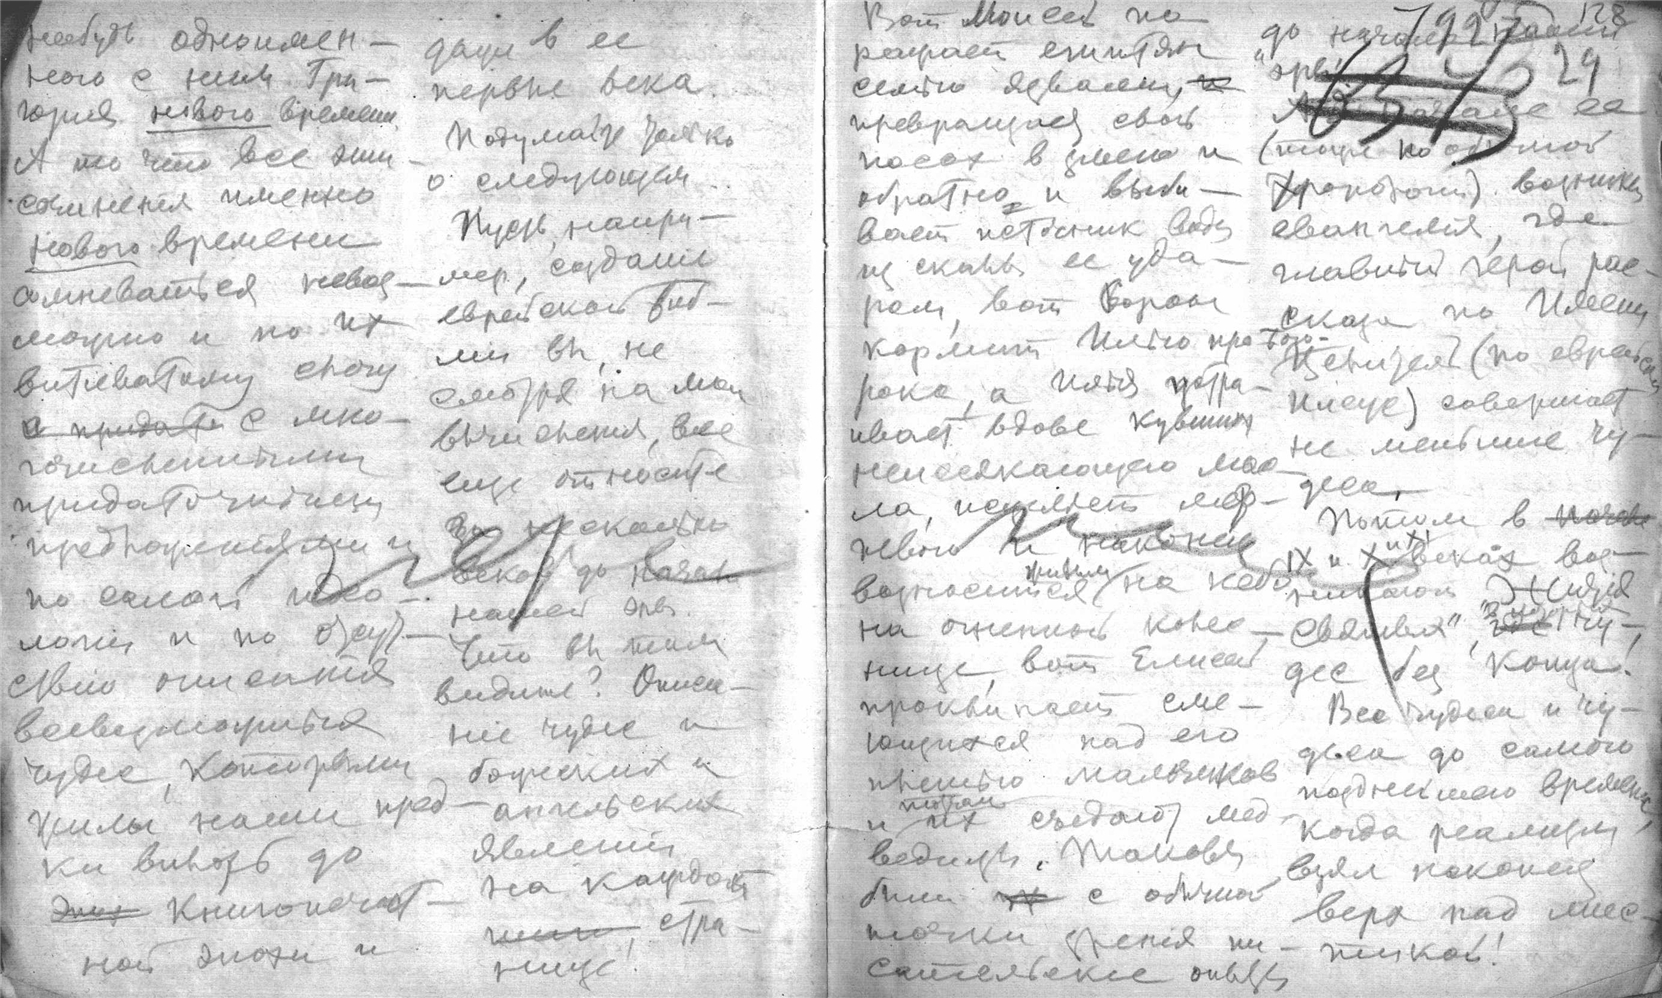 нибудь одноимен-
ного с ним Гри-
гория нового времени.
А то что все эти
сочинения именно
нового времени
сомневаться невоз-
можно и по их
витиеватому слогу
с мно-
гочисленными
придаточными
предложениями и
по самой идео-
логии и по отсут-
ствию описания
всевозможных
чудес, которыми
жили наши пред-
ки вплоть до
книгопечат-
ной эпохи и
даже в ее
первые века.
Подумайте только
о следующем.
Пусть, напри-
мер, создание
еврейской Биб-
лии вы, не
смотря на мои
вычисления, все
еще относите
за несколько
веков до начала
нашей эры.
Что вы там
видите? Описа-
ние чудес и
божеских и
ангельских
явлений
на каждой
стра-
нице!
Вот Моисей по
ражает египтян
семью язвами,
превращая свой
посох в змею и
обратно, и выби-
вает источник воды
из скалы ее уда-
ром, вот ворон
кормит Илью про-
рока, а Илья
ивает вдове кувшин
неиссякающего мас-
ла, исцеляет мёр-
твого и наконец
возносится живым на небо
на огненной колес-
нице, вот Елисей
проклинает сме-
ющихся над его
плешью мальчиков
и их съедают мед-
ведицы. Таковы
были с обычной
точки зрения пи-
сательские опыты
128
192
24
до начала нашей
"эры"
А в начале ее
(тоже по обычной
хронологии) возникли
евангелия, где
главный герой рас-
сказа по имени
(по еврейски
Иисус) совершает
не меньшие чу-
деса.
Потом в
IX и XI веках воз-
никают "Жития
Святых", чу-
дес без конца.
Все чудеса и чу-
деса до самого
позднейшего времени,
когда реализм
взял наконец
верх над мис-
тикой!